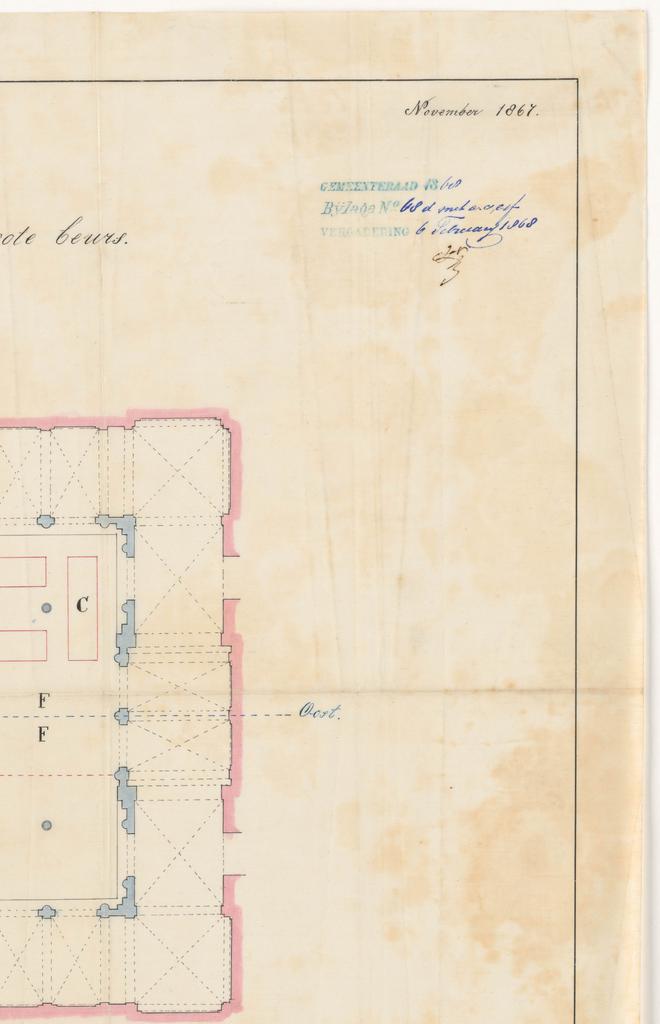 November 1867.
GEMEENTERAAD 1868
Bijlage No 68 d
VERGADERING 6 Februarij 1868
ote beurs.
C
F
F
Oost.